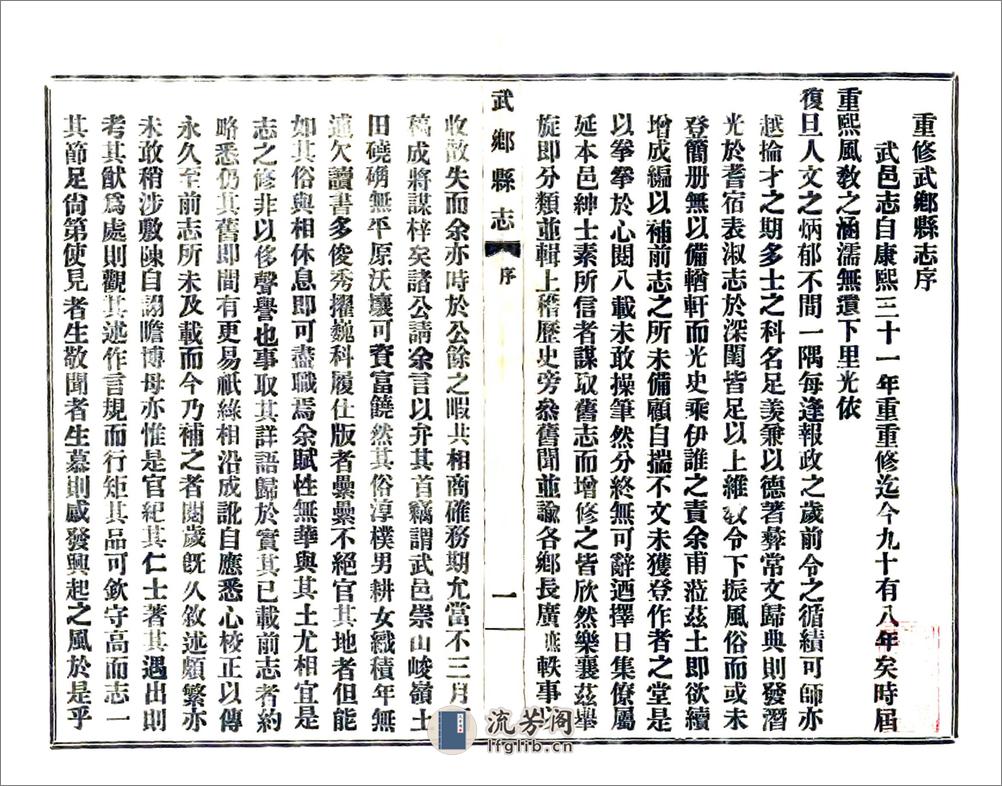 重修武鄉縣志序
武邑志自康熙三十一年重重修迄今九十有八年矣時屆
重熙風敎之涵濡無遺下里光依
復旦人文之炳郁不間一隅每逢報政之歲前令之循績可師亦
越掄才之期多士之科名足羨兼以德著彝常文歸典則發潛
光於耆宿表淑志於深閨皆足以上維敎令下振風俗而或未
登簡册無以備輶軒而光史乘伊誰之責余甫蒞茲土即欲續
增成編以補前志之所未備顧自揣不文未獲登作者之堂是
以拳拳於心閱八載未敢操筆然分終無可辭迺擇日集僚屬
延本邑紳士素所信者謀取舊志而增修之皆欣然樂襄茲舉
旋即分類並輯上稽歷史旁叅舊聞並諭各鄉長廣 軼事
武鄉縣志
序
一
收散失而余亦時於公餘之暇共相商確務期允當不三月
稿成將謀梓矣諸公請余言以弁其首竊謂武邑崇山峻嶺土
田磽确無平原沃壤可資富饒然其俗淳樸男耕女織積年無
逋欠讀書多俊秀擢巍科履仕版者纍纍不絕官其地者但能
如其俗與相休息即可盡職焉余賦性無華與其土尤相宜是
志之修非以侈聲譽也事取其詳語歸於實其已載前志者約
略悉仍其舊即間有更易祇緣相沿成訛自應悉心校正以傳
永久至前志所未及載而今乃補之者閱歲旣久敘述頗繁亦
未敢稍涉敷陳自詡瞻博母亦惟是官紀其仁士著其遇出則
考其猷爲處則觀其述作言規而行矩其品可欽守高而志一
其節足尙第使見者生敬聞者生慕則感發興起之風於是乎
流芳阁
lfglib.cn